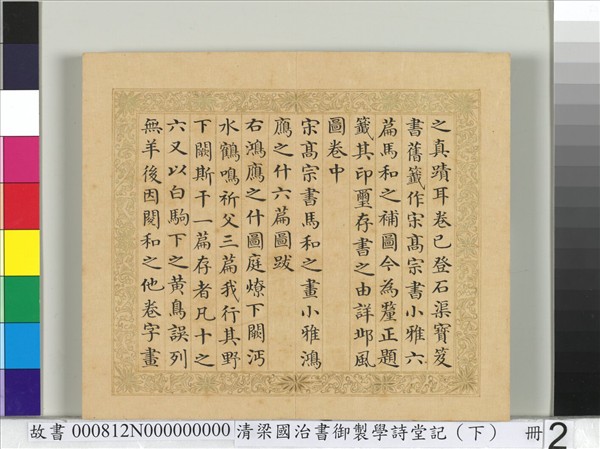 之真蹟耳卷已登石渠寶笈
書舊籤作宋髙宗書小雅六
篇馬和之補圖今為釐正題
籤其印璽存書之由詳邶風
圖卷中
宋髙宗書馬和之畫小雅鴻
鴈之什六篇圖跋
右鴻鴈之什圖庭燎下闕沔
水鶴鳴祈父三篇我行其野
下闕斯干一篇存者凡十之
六又以白駒下之黄鳥誤列
無羊後因閱和之他卷字畫
故書 000812N000000000 清梁國治書御製學詩堂記（下） 冊 2